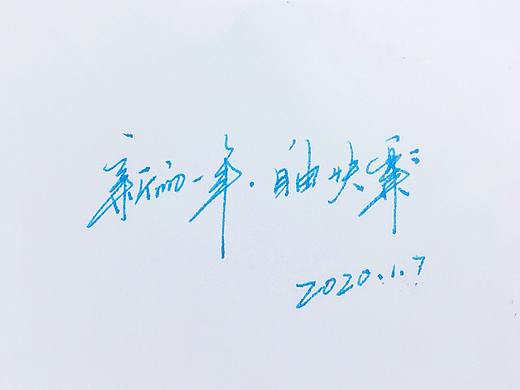 新的一年.自由快樂
2020.1.7